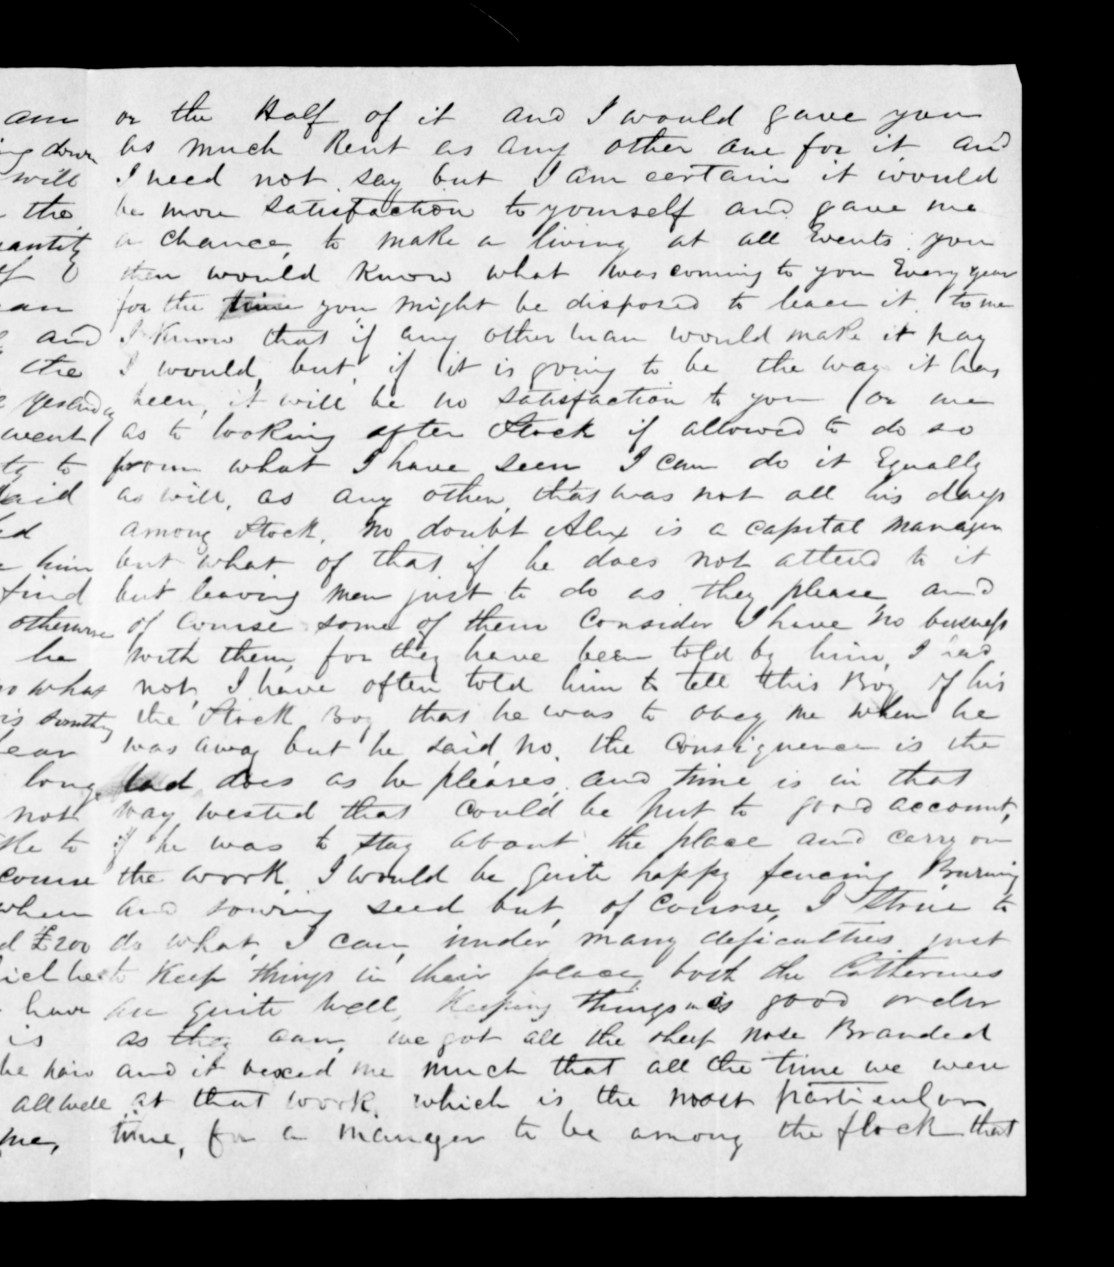 or the Half of it and I would gave you
as much Rent as any other one for it and
I need not say but I am certain it would
be more satisfaction to yourself and gave me
a chance, to make a living at all Events you
then would Know what was coming to you Every year
for the time you might be disposed to leace it to me
I Know that if any other man would make it pay
I would, but, if it is going to be the way it has
been, it will be no satisfaction to you (or me
as to looking after Stock if allowed to do so
from what I have seen I can do it Equally
as will, as any other, that was not all his days
among Stock. No doubt Alex is a capital manager
but what of that if he does not attend to it
but leaving men just to do as they please and
of Course some of them Consider I have no business
with them, for they have been told by him, I had
not, I have often told him to tell this Boy of his
the Stock Boy that he was to obey me when he
was away but he said no. the Consiquence is the
lad does as he pleases, and time is in that
way wested that could be put to good account,
if he was to stay about the place and carry on
the work, I would be quite happy fencing Burning
and sowing seed but, of Course, I strive to
do what I can, under many deficulties just
to Keep things in their place, both the Catherines
are quite well, Keeping things in good order
as they can, we got all the sheep nose Branded
and it vexed me much that all the time we were
at that work, which is the most particular
time, for a manager to be among the flock that
am
ing down
will
the
uantity
if I
and
the
yesterday
went
to
said
him
find
otherwise
he
what
long
not
to
course
when
£200
have
is
all well
me,